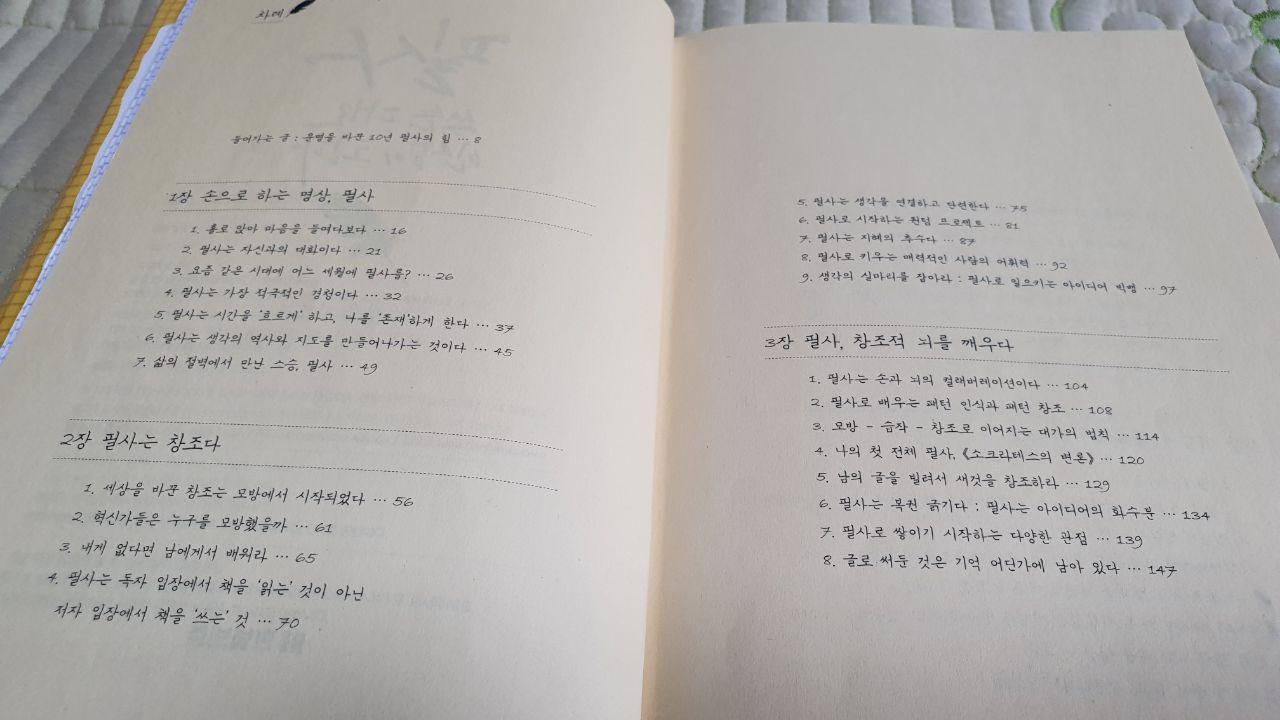 차례
들어가는 글 : 운명을 바꾼 10년 필사의 힘 … 8
1장 손으로 하는 명상, 필사
1. 홀로 앉아 마음을 들여다보다 … 16
2. 필사는 자신과의 대화이다 … 21
3. 요즘 같은 시대에 어느 세월에 필사를? … 26
4. 필사는 가장 적극적인 경청이다 … 32
5. 필사는 시간을 '흐르게' 하고, 나를 '존재'하게 한다 … 37
6. 필사는 생각의 역사와 지도를 만들어나가는 것이다 … 45
7. 삶의 절벽에서 만난 스승, 필사 … 49
2장 필사는 창조다
1. 세상을 바꾼 창조는 모방에서 시작되었다 … 56
2. 혁신가들은 누구를 모방했을까 … 61
3. 내게 없다면 남에게서 배워라 … 65
4. 필사는 독자 입장에서 책을 '읽는' 것이 아닌
저자 입장에서 책을 '쓰는' 것 … 70
5. 필사는 생각을 연결하고 단련한다 … 75
6. 필사로 시작하는 퀀텀 프로젝트 … 81
7. 필사는 지혜의 추수다 … 87
8. 필사로 키우는 매력적인 사람의 어휘력 … 92
9. 생각의 실마리를 잡아라 : 필사로 일으키는 아이디어 빅뱅 … 97
3장 필사, 창조적 뇌를 깨우다
1. 필사는 손과 뇌의 컬래버레이션이다 … 104
2. 필사로 배우는 패턴 인식과 패턴 창조 … 108
3. 모방 - 습작 - 창조로 이어지는 대가의 법칙 … 114
4. 나의 첫 전체 필사, 《소크라테스의 변론》 … 120
5. 남의 글을 빌려서 새것을 창조하라 … 129
6. 필사는 복권 긁기다 : 필사는 아이디어의 화수분 … 134
7. 필사로 쌓이기 시작하는 다양한 관점 … 139
8. 글로 써둔 것은 기억 어딘가에 남아 있다 … 147